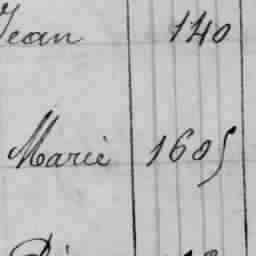 Jean 140
Marie 1605